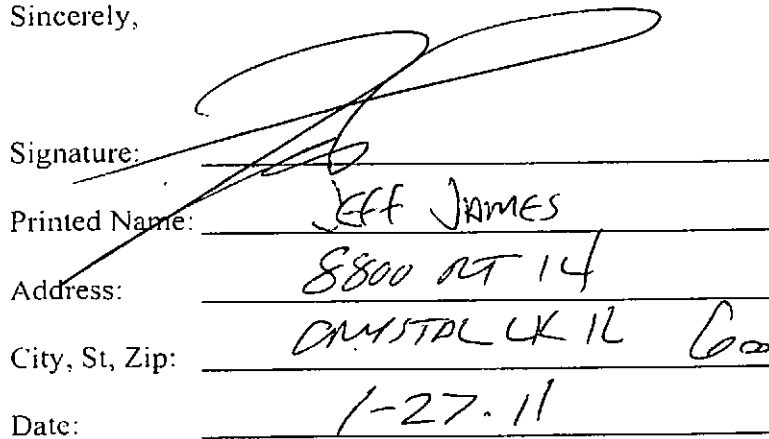 Sincerely,
Signature:
Printed Name: JEFF JAMES
Address: 8800 RT 14
City, St, Zip: CRYSTAL LK IL 600
Date: 1-27.11